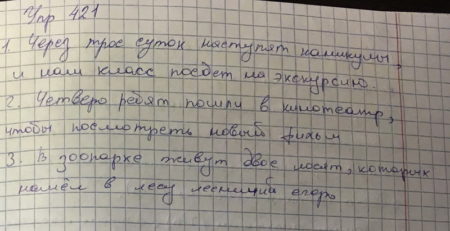 Упр 421
1. Через трое суток наступят каникулы,
и наш класс поедет на экскурсию.
2. Четверо ребят пошли в кинотеатр,
чтобы посмотреть новый фильм
3. В зоопарке живут двое лосят, которых
нашёл в лесу лесничий егерь